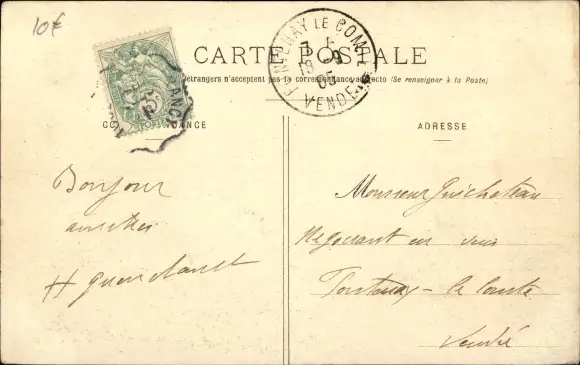 10€
CARTE POSTALE
FONTENAY LE COMTE
VENDÉE
étrangers n'acceptent pas la correspondance au recto (Se renseigner à la Poste)
CORRESPONDANCE
ADRESSE
Bonjour
amitiés
Monsieur Guicheteau
Négociant en vins
Fontenay-le Comte
Vendée